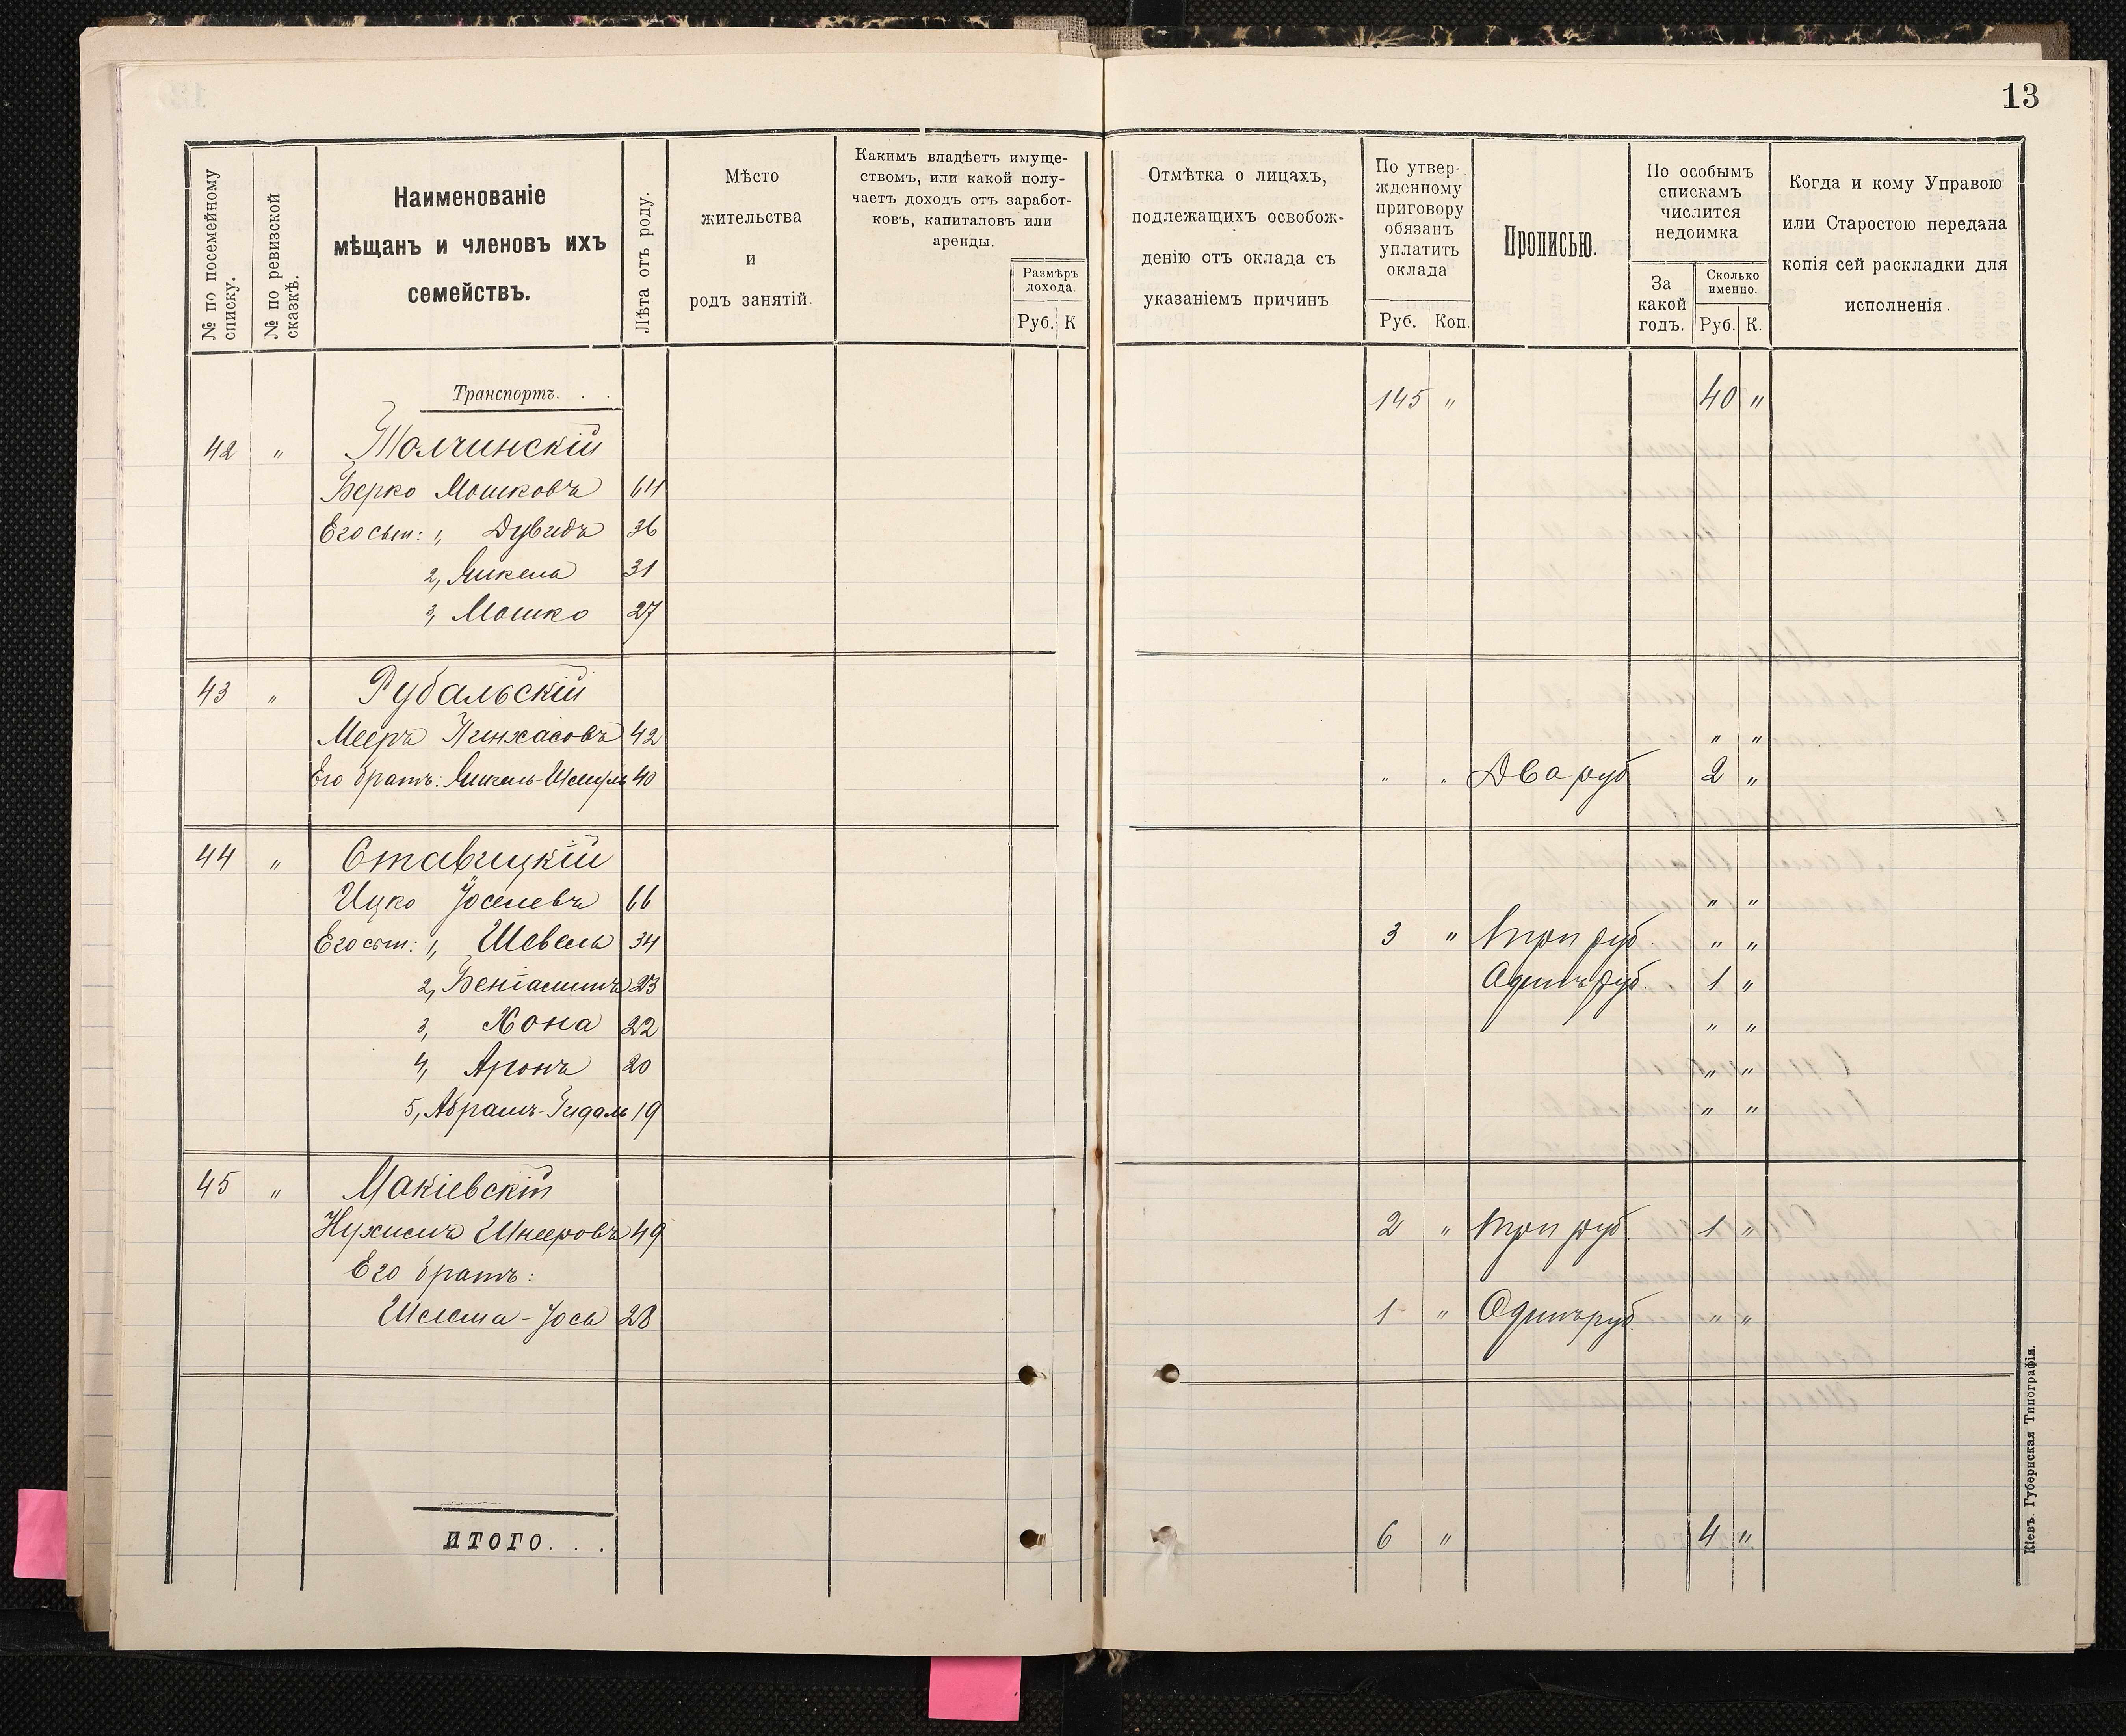 13
№ по посемейному списку.
№ по ревизской сказкѣ.
Наименованіе
мѣщанъ и членовъ ихъ
семействъ.
Лѣта отъ роду.
Мѣсто
жительства
и
родъ занятій.
Какимъ владѣетъ имуще-
ствомъ, или какой полу-
чаетъ доходъ отъ заработ-
ковъ, капиталовъ или
аренды.
Размѣръ
дохода.
Руб. К
Отмѣтка о лицахъ,
подлежащихъ освобож-
денію отъ оклада съ
указаніемъ причинъ
По утвер-
жденному
приговору
обязанъ
уплатить
оклада
Руб. Коп.
Прописью.
По особымъ
спискамъ
числится
недоимка
За
какой
годъ.
Сколько
именно.
Руб. К.
Когда и кому Управою
или Старостою передана
копія сей раскладки для
исполненія.
Транспортъ. . . 145 " 40 "
42 " Толчинскій
Берко Мошковъ 64
Его сын: 1, Дувидъ 36
2, Янкель 31
3, Мошко 27
43 " Рубальскій
Мееръ Пинхасовъ 42 " "
Его братъ: Янкель-Шмуль 40 " " Два руб. 2 "
44 " Ставицкій
Ицко Іоселевъ 66 " "
Его сын: 1, Шевель 34 3 " три руб. " "
2, Беніаминъ 23 Одинъ руб. 1 "
3, Хона 22 " "
4, Аронъ 20 " "
5, Абрамъ-Гидаль 19 " "
45 " Макіевскій
Нухимъ Шнееровъ 49 2 " три руб 1 "
Его братъ:
Шлема-Іось 28 1 " Одинъ руб. " "
ИТОГО. . . 6 " 4 "
Кіевъ. Губернская Типографія.